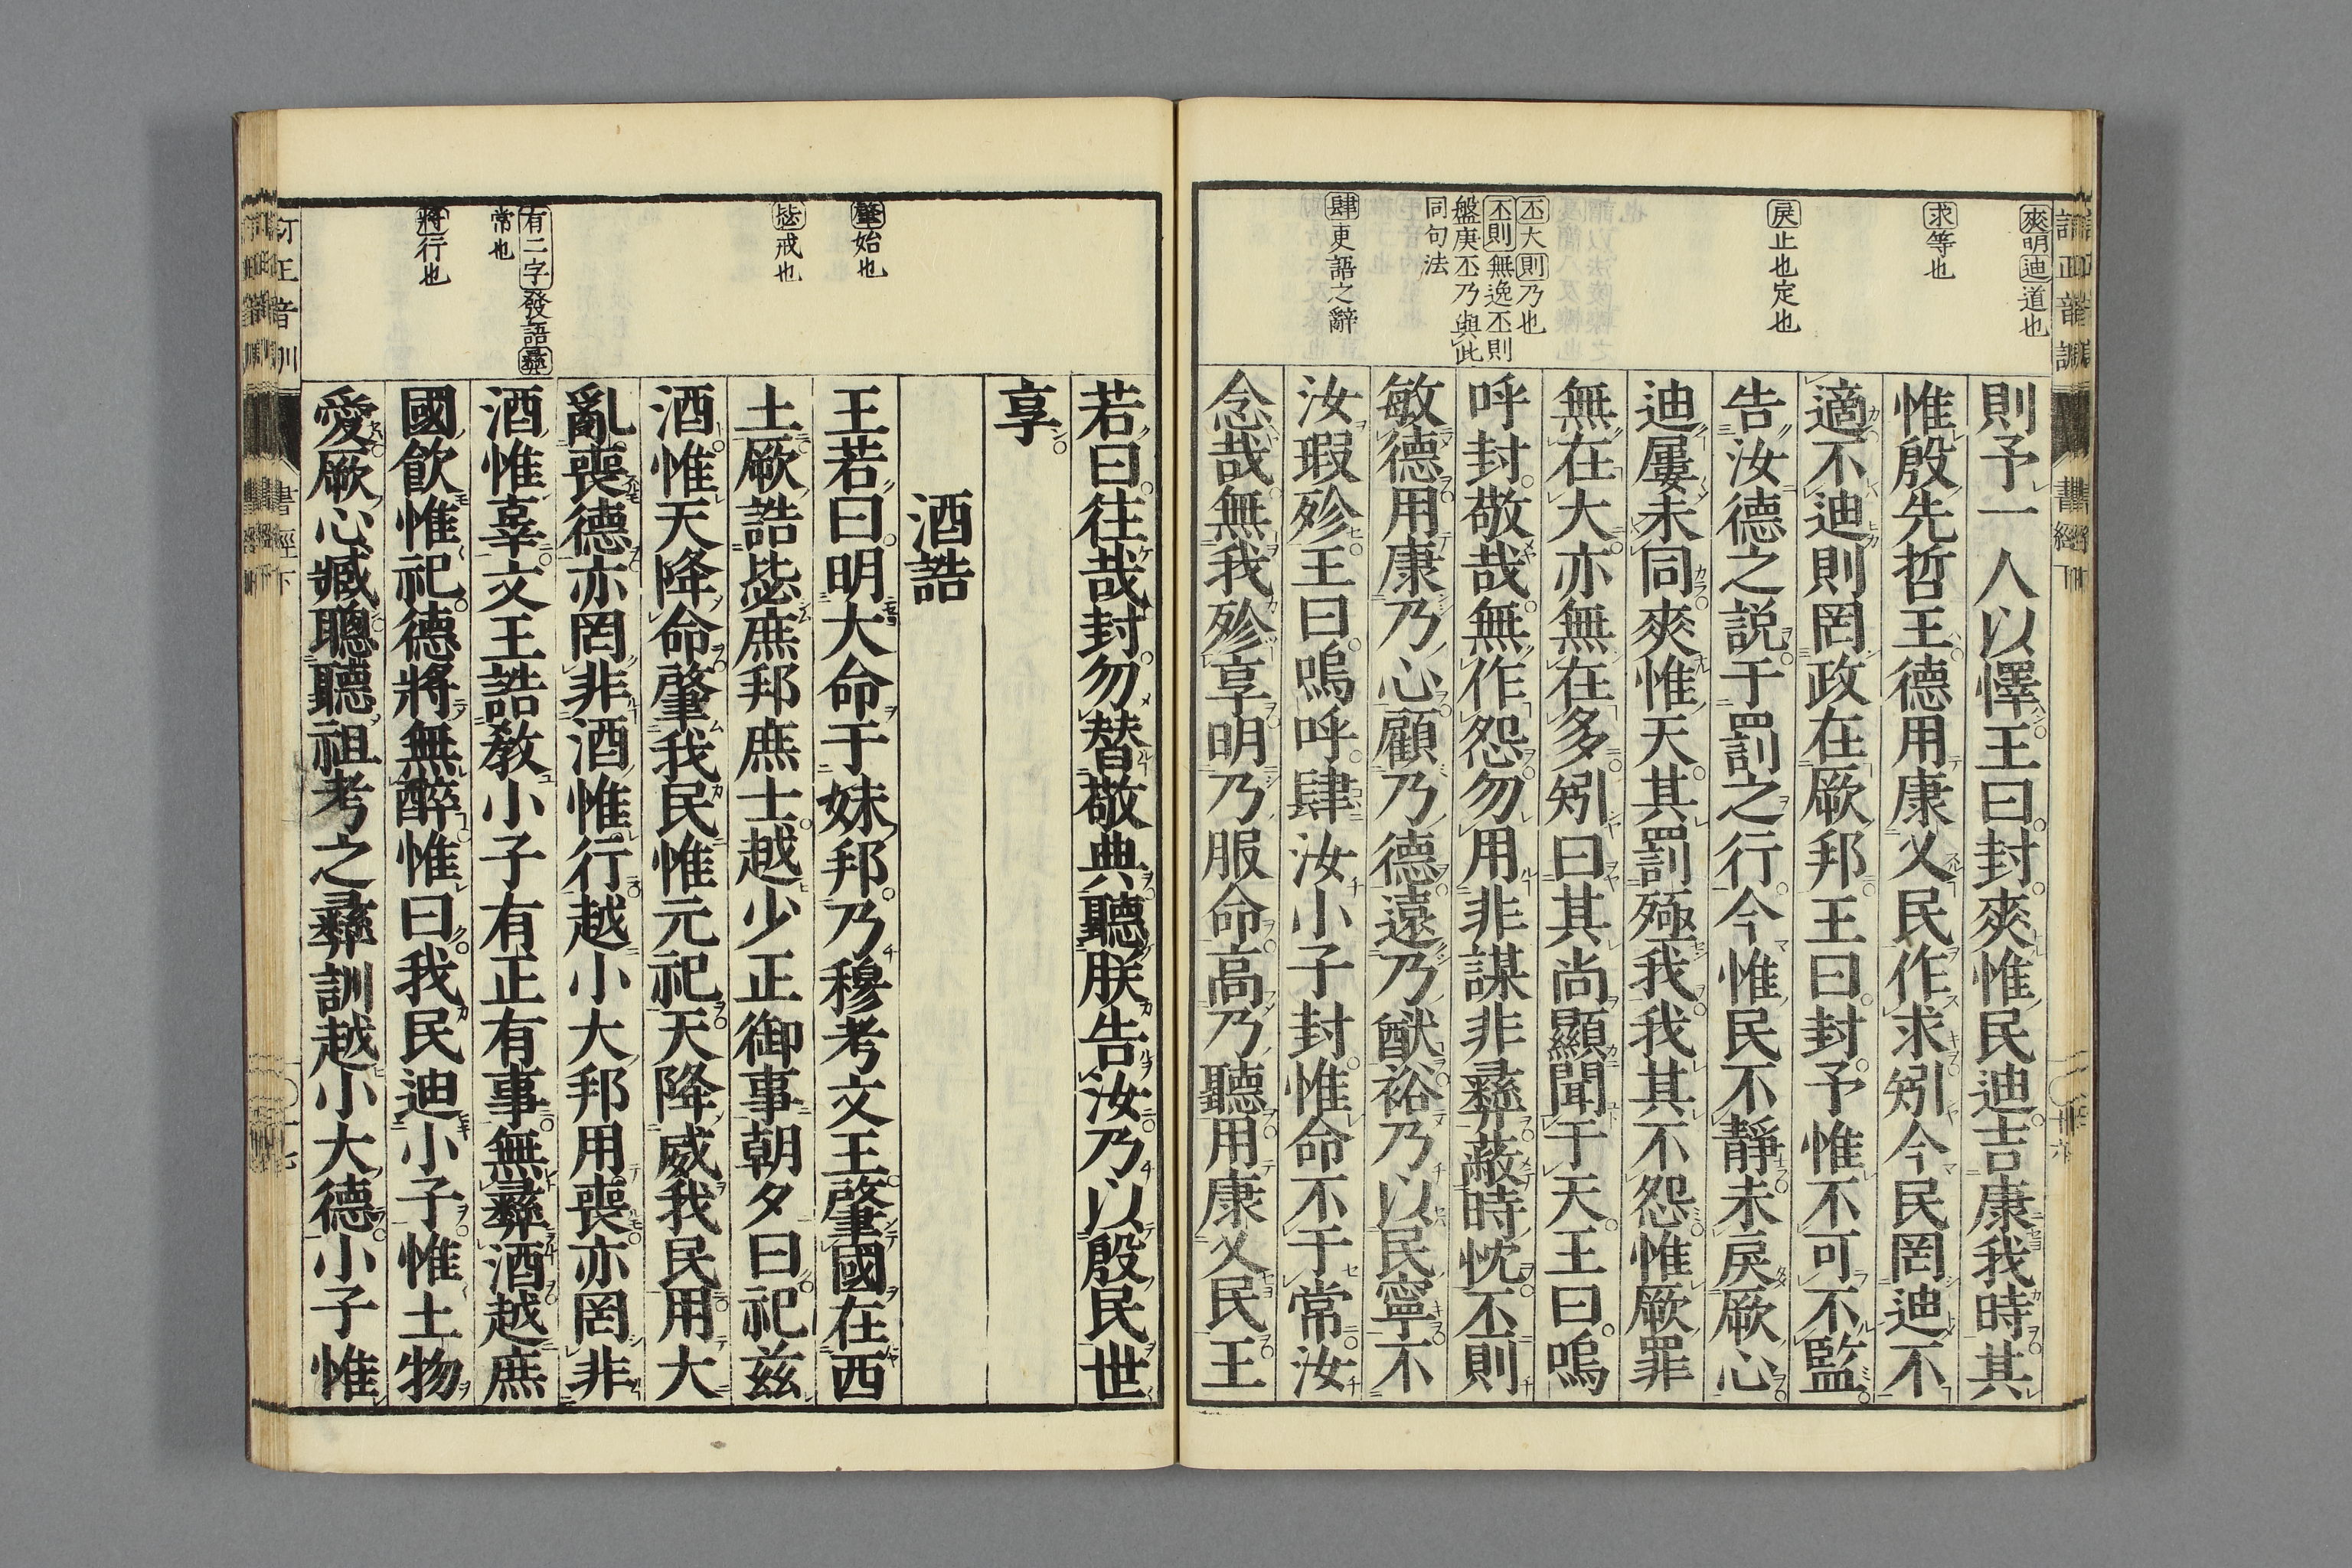 爽明迪道也
求等也
戾止也定也
丕大則乃也
丕則無逸丕則
盤庚丕乃與此
同句法
肆更語之辭
則予一人以懌王曰封爽惟民迪吉康我時其
惟殷先哲王德用康乂民作求矧今民罔迪不
適不迪則罔政在厥邦王曰封予惟不可不監
告汝德之説于罰之行今惟民不靜未戾厥心
迪屢未同爽惟天其罰殛我我其不怨惟厥罪
無在大亦無在多矧曰其尚顯聞于天王曰嗚
呼封敬哉無作怨勿用非謀非彝蔽時忱丕則
敏德用康乃心顧乃德遠乃猷裕乃以民寧不
汝瑕殄王曰嗚呼肆汝小子封惟命不于常汝
念哉無我殄享明乃服命高乃聽用康乂民王
肇始也
毖戒也
有二字發語彝
常也
將行也
若曰往哉封勿替敬典聽朕告汝乃以殷民世
享
酒誥
王若曰明大命于妹邦乃穆考文王肇國在西
土厥誥毖庶邦庶士越少正御事朝夕曰祀茲
酒惟天降命肇我民惟元祀天降威我民用大
亂喪德亦罔非酒惟行越小大邦用喪亦罔非
酒惟辜文王誥敎小子有正有事無彝酒越庶
國飮惟祀德將無醉惟曰我民迪小子惟土物
愛厥心臧聰聽祖考之彝訓越小大德小子惟
訂正音訓
書經下